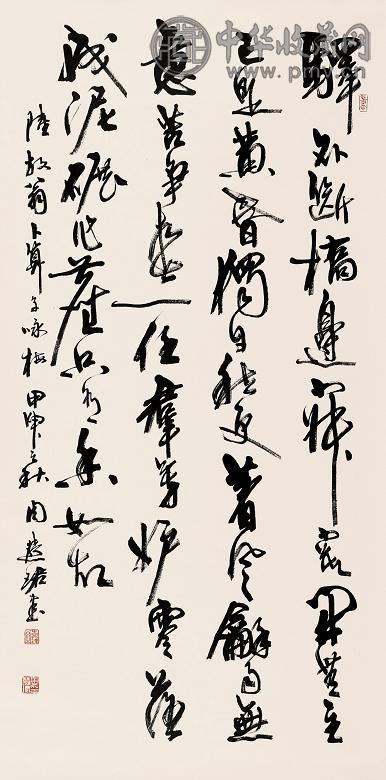 中华收藏网
驛外斷橋邊寂寞開無主
已是黃昏獨自愁更著風龢雨無
意苦爭春一任羣芳妒零落
成泥碾作塵只有香如故
陸放翁卜算子咏梅 甲申之秋 周慧珺書